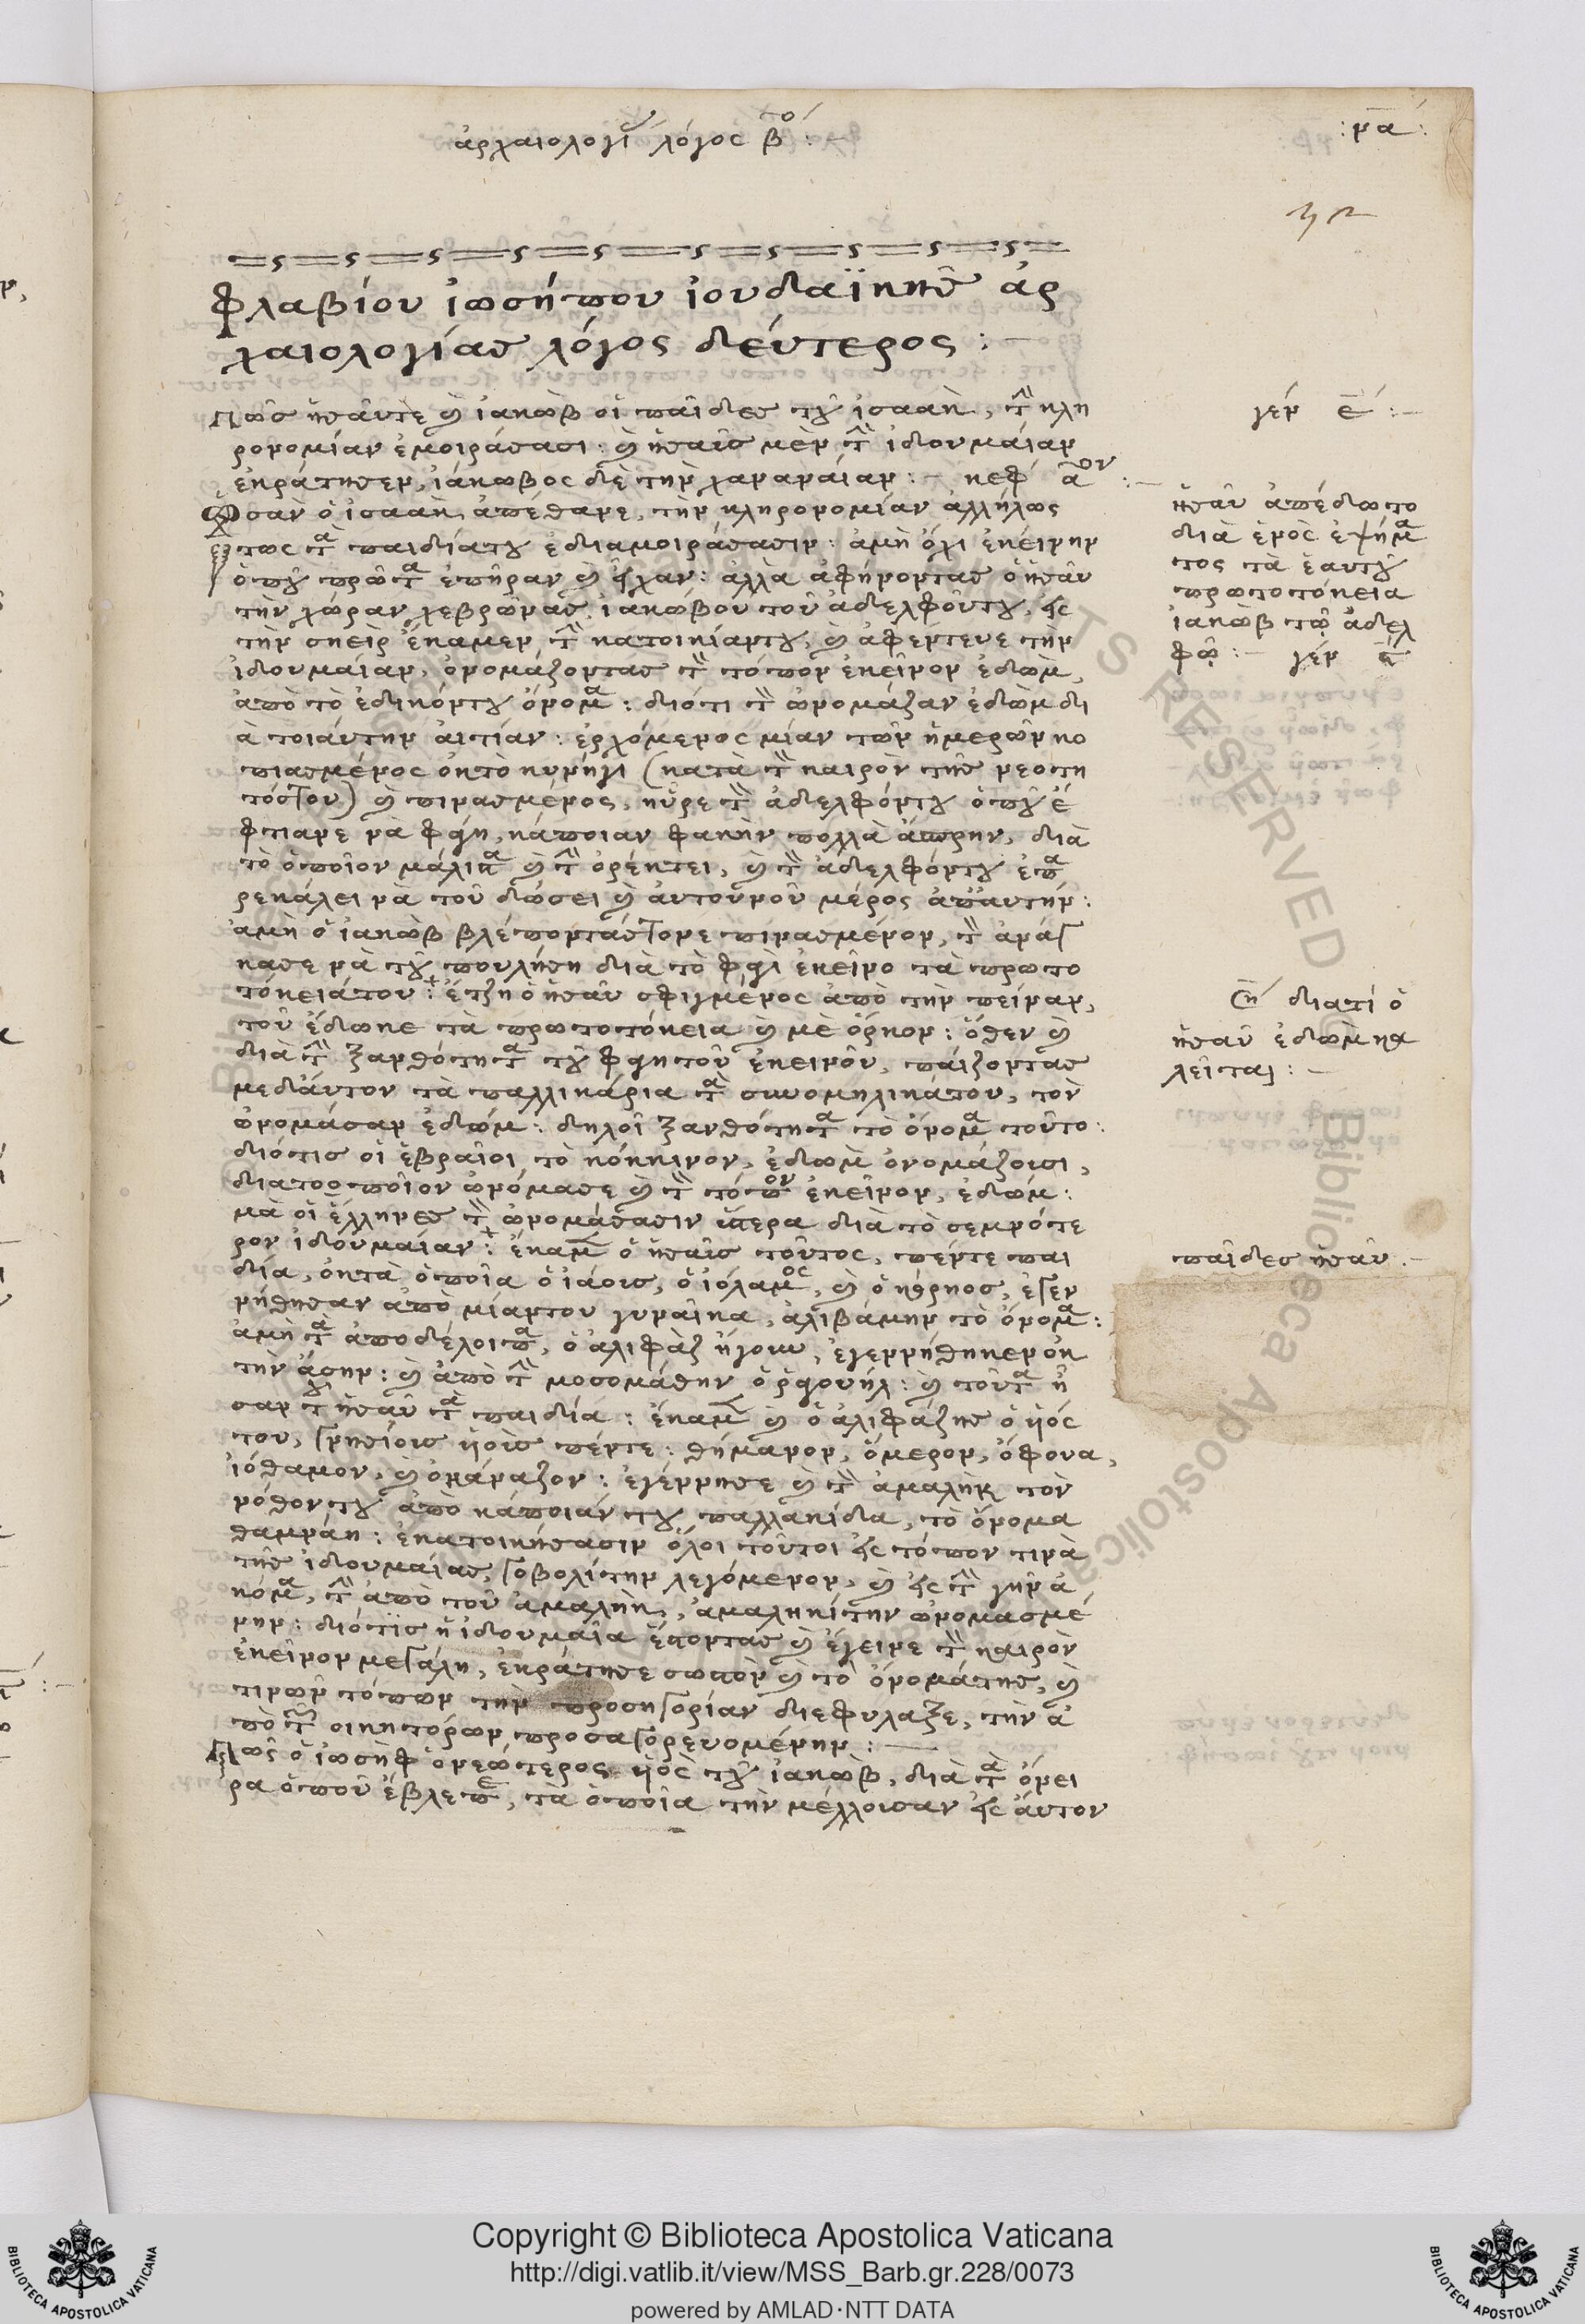 ἀρχαιολογί λόγος β^ον :
: να :
φλαβίου ἰωσήπου ἰουδαϊκῆσ ἀρ
χαιολογίασ λόγος δεύτερος : —
Πῶσ ἠσαῦτε καὶ ἰακὼβ οἱ παῖδεσ τοῦ ἰσαὰκ, τὴν κλη
ρονομίαν ἐμοιράσασι : καὶ ἠσαῦσ μὲν τὴν ἰδουμαίαν
ἐκράτησεν, ἰάκωβος δὲ τὴν χαναναίαν : — κεφ α^ον : —
σὰν ὁ ἰσαὰκ ἀπέθανε, τὴν κληρονομίαν ἀλλήλως
τως τὰ παιδίατου ἐδιαμοιράσασιν : ἀμὴ ὄχι ἐκείνην
ὁποῦ πρῶτα ἐπῆραν καὶ εἶχαν : ἀλλὰ ἀφήνοντασ ὁ ἠσαῦ
τὴν χώραν χεβρῶνασ, ἰακώβου τοῦ ἀδελφοῦντου, εἰς
τὴν σηεὶρ ἔκαμεν τὴν κατοικίαντου, καὶ ἀφέντευε τὴν
ἰδουμαίαν, ὀνομάζοντασ τὸν τόπον ἐκεῖνον ἐδὼμ,
ἀπὸ τὸ ἐδικόντου ὄνομα : διότι τὸν ὠνομάζαν ἐδὼμ δι
ὰ τοιάυτην ἀιτίαν : ἐρχόμενος μίαν τῶν ἡμερῶν κο
πιασμένος ὀκτὸ κυνήγι (κατὰ τὸν καιρὸν τῆσ νεοτη
τόστου) καὶ πινασμένος, ηὗρε τὸν ἀδελφόντου ὁποῦ ἔ
φτιανε νὰ φάγη, κάποιαν φακὴν πολλὰ ἄσπρην, διὰ
τὸ ὁποῖον μάλιστα καὶ τὴν ὀρέκτει, καὶ τὸν ἀδελφόντου ἐπα
ρεκάλει νὰ τοῦ δώσει καὶ ἀυτουνοῦ μέρος ἀπάυτην :
ἀμὴ ὁ ἰακὼβ βλέποντάστονε πινασμένον, τὸν ἀνάγ
κασε νὰ τοῦ πουλήση διὰ τὸ φαγὶ ἐκεῖνο τὰ πρωτο
τόκειάτου : ἔτζη ὁ ἠσαῦ σφιγμένος ἀπὸ τὴν πεῖναν,
τοῦ ἔδωκε τὰ πρωτοτόκεια καὶ μὲ ὅρκον : ὅθεν καὶ
διὰ τὴν ξανθότητα τοῦ φαγητοῦ ἐκεινοῦ, παίζοντασ
μεδάυτον τὰ παλλικάρια τὰ συνομηλικάτου, τὸν
ὠνομάσαν ἐδώμ : δηλοῖ ξανθότητα τὸ ὄνομα τοῦτο :
διότισ οἱ ἑβραῖοι τὸ κόκκινον, ἐδωμ ὀνομάζουσι,
διατοοποῖον ὠνόμασε καὶ τὸν τόπον ἐκεῖνον, ἐδώμ :
μὰ οἱ ἕλληνεσ τὴν ὠνομάσασιν ὕστερα διὰ τὸ σεμνότε
ρον ἰδουμαίαν : ἔκαμεν ὁ ἠσαῦσ τοῦτος, πέντε παι
δία, ὀκτὰ ὁποῖα ὁ ἰάουσ, ὁ ἰόλαμος, καὶ ὁ κόρκοσ, ἐγεν
νήθησαν ἀπὸ μίαντου γυναῖκα, ἀλιβάμην τὸ ὄνομα :
ἀμὴ τὰ ἀποδέλοιπα, ὁ ἀλιφὰζ ἤγουν, ἐγεννήθηκεν ὀκ
τὴν ἄσην : καὶ ἀπὸ τὴν μοσομάθην ὁ ῥαουήλ : καὶ τοῦτα ἦ
σαν τοῦ ἠσαῦ τὰ παιδία : ἔκαμεν καὶ ὁ ἀλιφάζησ ὁ ἡός
του, γνησίουσ ἡοὺσ πέντε : θήμανον, ὅμερον, ὄφουα,
ἰόθαμον, καὶ ὀκάναζον : ἐγέννησε καὶ τὸν ἀμαλὴκ τὸν
νόθον του ἀπὸ κάποιάν του παλλακίδα, τὸ ὄνομα
θαμνάη : ἐκατοικήσασιν ὅλοι τοῦτοι εἰς τόπον τινὰ
τῆσ ἰδουμαίασ, γοβολίτην λεγόμενον, καὶ εἰς τὴν γῆν ἀ
κόμα, τὴν ἀπὸ τοῦ ἀμαλὴκ, ἀμαληκίτην ὠνομασμέ
νην : διότισ ἡ ἰδουμαῖα ἔστοντασ καὶ ἔγεινε τὸν καιρὸν
ἐκεῖνον μεγάλη, ἐκράτησε σωστὸν καὶ τὸ ὀνομάτησ, καὶ
τινῶν τόπων τὴν προσηγορίαν διεφύλαξε, τὴν ἀ
πὸ τῶν οικητόρων προσαγορευομένην : —
Πῶς ὁ ἰωσὴφ ὁ νεώτερος ἡὸς τοῦ ἰακὼβ, διὰ τὰ ὀνεί
ρα ὁποῦ ἔβλεπε, τὰ ὁποῖα τὴν μέλλουσαν εἰς ἀυτον
γέν ε : —
ἠσαῦ ἀπέδωτο
διὰ ἑνὸς ἑψήμα
τος τὰ ἑαυτοῦ
πρωτοτόκεια
ἰακὼβ τῷ ἀδελ
φῷ : — γέν
διατί ὁ
ἠσαῦ ἐδὼμ κα
λεῖται : —
παῖδεσ ἠσαῦ . —
Copyright © Biblioteca Apostolica Vaticana
http://digi.vatlib.it/view/MSS_Barb.gr.228/0073
powered by AMLAD·NTT DATA